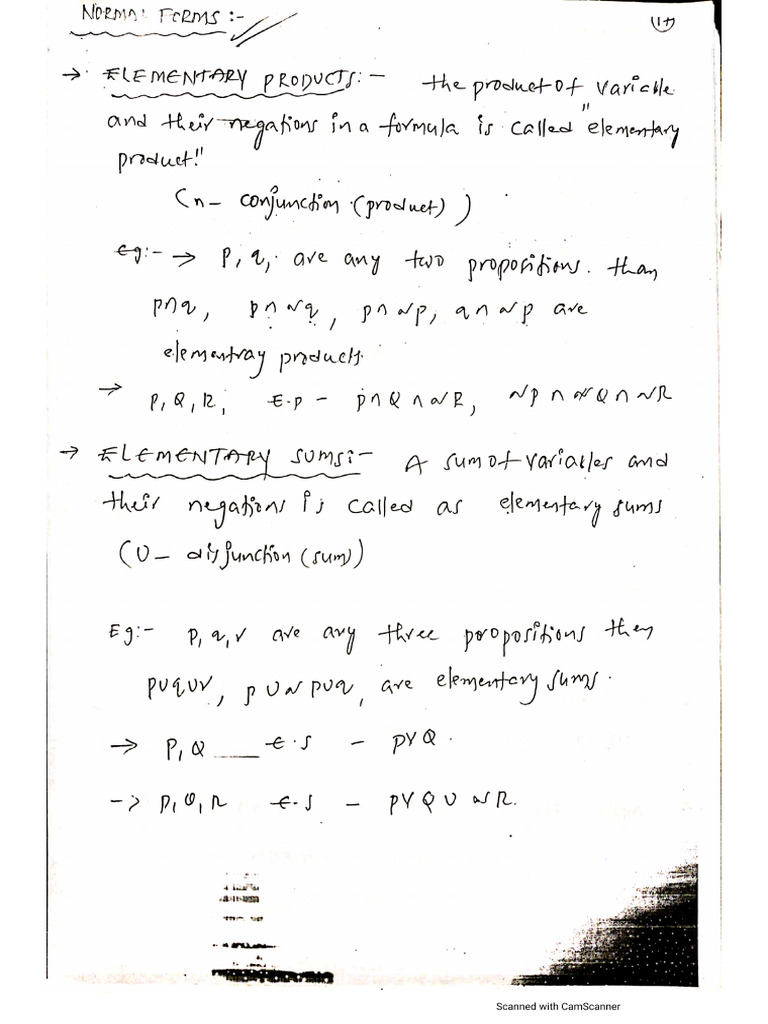 NORMAL FORMS :-
(17)
→ ELEMENTARY PRODUCTS:- the product of variable
and their negations in a formula is called "elementary
product!"
(n- conjunction (product) )
Eg:- → p, q, are any two propositions. than
p∩q, p∩~q, p∩~p, q∩~p are
elementray products.
→ P, Q, R, E.p - p∩Q∩~R, ~p∩~Q∩~R
→ ELEMENTARY SUMS:- A sum of variables and
their negations is called as elementary sums
(U- disjunction (sum))
Eg:- p, q, r are any three propositions then
pUqUr, pU~pUq, are elementary sums.
→ P, Q ___ E.S - PVQ.
-> P, Q, R E.S - PVQU~R.
Scanned with CamScanner